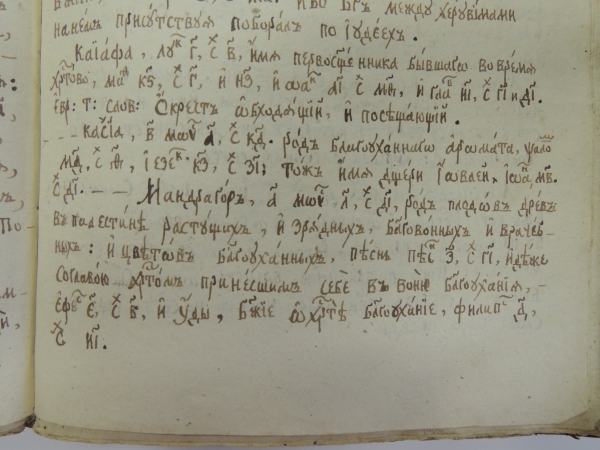 и бо бг҃ъ между херувїмами
на немъ присꙋтствꙋя поборалъ по їꙋдеехъ.
Каїафа, лꙋк г҃, с в҃, имя первосщ҃енника бывшагѡ во время
хр҃тово, маѳ кѕ҃, с г҃, и нз҃, и їѡан аі҃ с мѳ҃, и глав иі҃, с гі҃ и ді҃.
евр: т: слов: Ѻкрестъ ѡбходящїй, и посѣщающїй.
— — касїа, в҃ моѷ л҃, с кд҃. родъ благоꙋханнагѡ аромата, ѱало
мд҃, с ѳ҃, іезек кз҃, с зі҃; тожъ имя дщери їѡвлен, їѡв мв.
с ді҃. — — Мандрагоръ, а҃ моѷ л҃, с ді҃, родъ плодѡвъ древъ
въ палестінѣ растꙋщихъ, и зрядныхъ, бл҃говонныхъ и врачеб—
ныхъ: и цвѣтѡвъ бл҃гоꙋханныхъ, пѣснь пѣс з҃, с гі҃, идѣже
со главою хр҃томъ принесшимъ себѐ въ воню бл҃гоꙋханїя, —
ефес е҃, с в҃, и ꙋды, бж҃їе ѡ хр҃тѣ бл҃гоꙋханїе, филип д҃,
с иі҃.